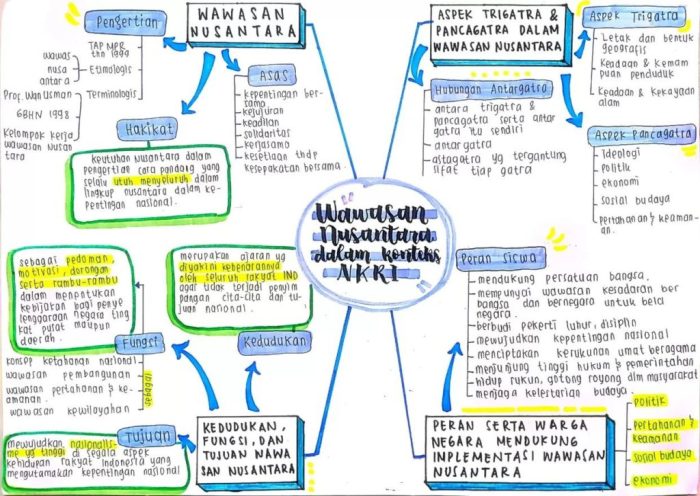 WAWASAN
NUSANTARA
Pengertian
TAP MPR
thn 1999
wawas
nusa
antara
Etimologis
Prof. Wan Usman
GBHN 1998
Kelompok kerja
wawasan Nusan
tara
Terminologis
Asas
kepentingan ber-
sama
kejujuran
keadilan
solidaritas
kerjasama
kesetiaan thdp
kesepakatan bersama.
Hakikat
keutuhan Nusantara dalam
pengertian cara pandang yang
selalu utuh menyeluruh dalam
lingkup nusantara dalam ke-
pentingan nasional.
ASPEK TRIGATRA &
PANCAGATRA DALAM
WAWASAN NUSANTARA
Aspek Trigatra
Letak dan bentuk
geografis
Keadaan & kemam
puan penduduk
Keadaan & kekayaan
alam
Hubungan Antargatra
antara trigatra &
pancagatra serta antar
gatra itu sendiri
antar gatra
astagatra yg tergantung
sifat tiap gatra
Aspek Pancagatra
ideologi
politik
ekonomi
sosial budaya
pertahanan & keaman-
an.
"Wawasan
Nusantara
dalam konteks
NKRI"
sebagai pedoman,
motivasi, dorongan
serta rambu-rambu
dalam menentukan
kebijakan bagi penye
lenggaraan negara ting
kat pusat maupun
daerah.
Fungsi
konsep ketahanan nasional
wawasan pembangunan
wawasan pertahanan & ke-
amanan.
wawasan kewilayahan
sebagai
merupakan ajaran yg
diyakini kebenarannya
oleh seluruh rakyat IND
agar tidak terjadi penyim
pangan cita-cita dan tu-
juan nasional.
Kedudukan
Tujuan
mewujudkan nasionalis-
me yg tinggi di segala aspek
kehidupan rakyat Indonesia yang
mengutamakan kepentingan nasional
KEDUDUKAN,
FUNGSI, DAN
TUJUAN WAWA
SAN NUSANTARA
Peran Siswa
mendukung persatuan bangsa.
mempunyai wawasan kesadaran ber
bangsa dan bernegara untuk bela
negara.
berbudi pekerti luhur, disiplin
mewujudkan kepentingan nasional
menciptakan kerukunan umat beragama
menjunjung tinggi hukum & pemerintahan
hidup rukun, gotong royong dlm masyarakat
menjaga kelestarian budaya.
PERAN SERTA WARGA
NEGARA MENDUKUNG
IMPLEMENTASI WAWASAN
NUSANTARA
politik
pertahanan &
keamanan
sosial budaya
ekonomi